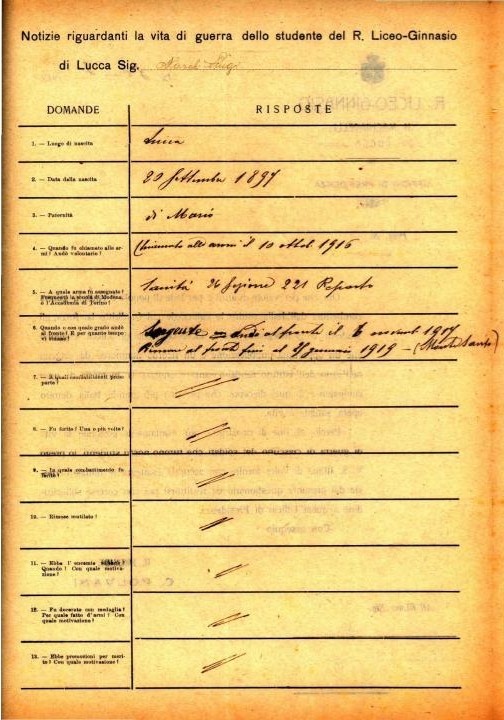 Notizie riguardanti la vita di guerra dello studente del R. Liceo-Ginnasio
di Lucca Sig.
DOMANDE
RISPOSTE
1. — Luogo di nascita
Lucca
2. — Data della nascita
29 Settembre 1897
3. — Paternità
di Mario
4. — Quando fu chiamato alle armi? Andò volontario?
Chiamato alle armi il 10 ottob. 1916
5. — A quale arma fu assegnato? Frequentò la scuola di Modena, o l'Accademia di Torino?
Sanità 36 Sezione 221 Reparto
6. — Quando e con quale grado andò al fronte? E per quanto tempo vi rimase?
Sergente — Andò al fronte il 6 1917
Rimase al fronte fino al Gennaio 1919 (Monte Santo)
7. — A quali combattimenti prese parte?
8. — Fu ferito? Una o più volte?
9. — In quale combattimento fu ferito?
10. — Rimase mutilato?
11. — Ebbe l'encomio solenne? Quando? Con quale motivazione?
12. — Fu decorato con medaglia? Per quale fatto d'armi? Con quale motivazione?
13. — Ebbe promozioni per merito? Con quale motivazione?